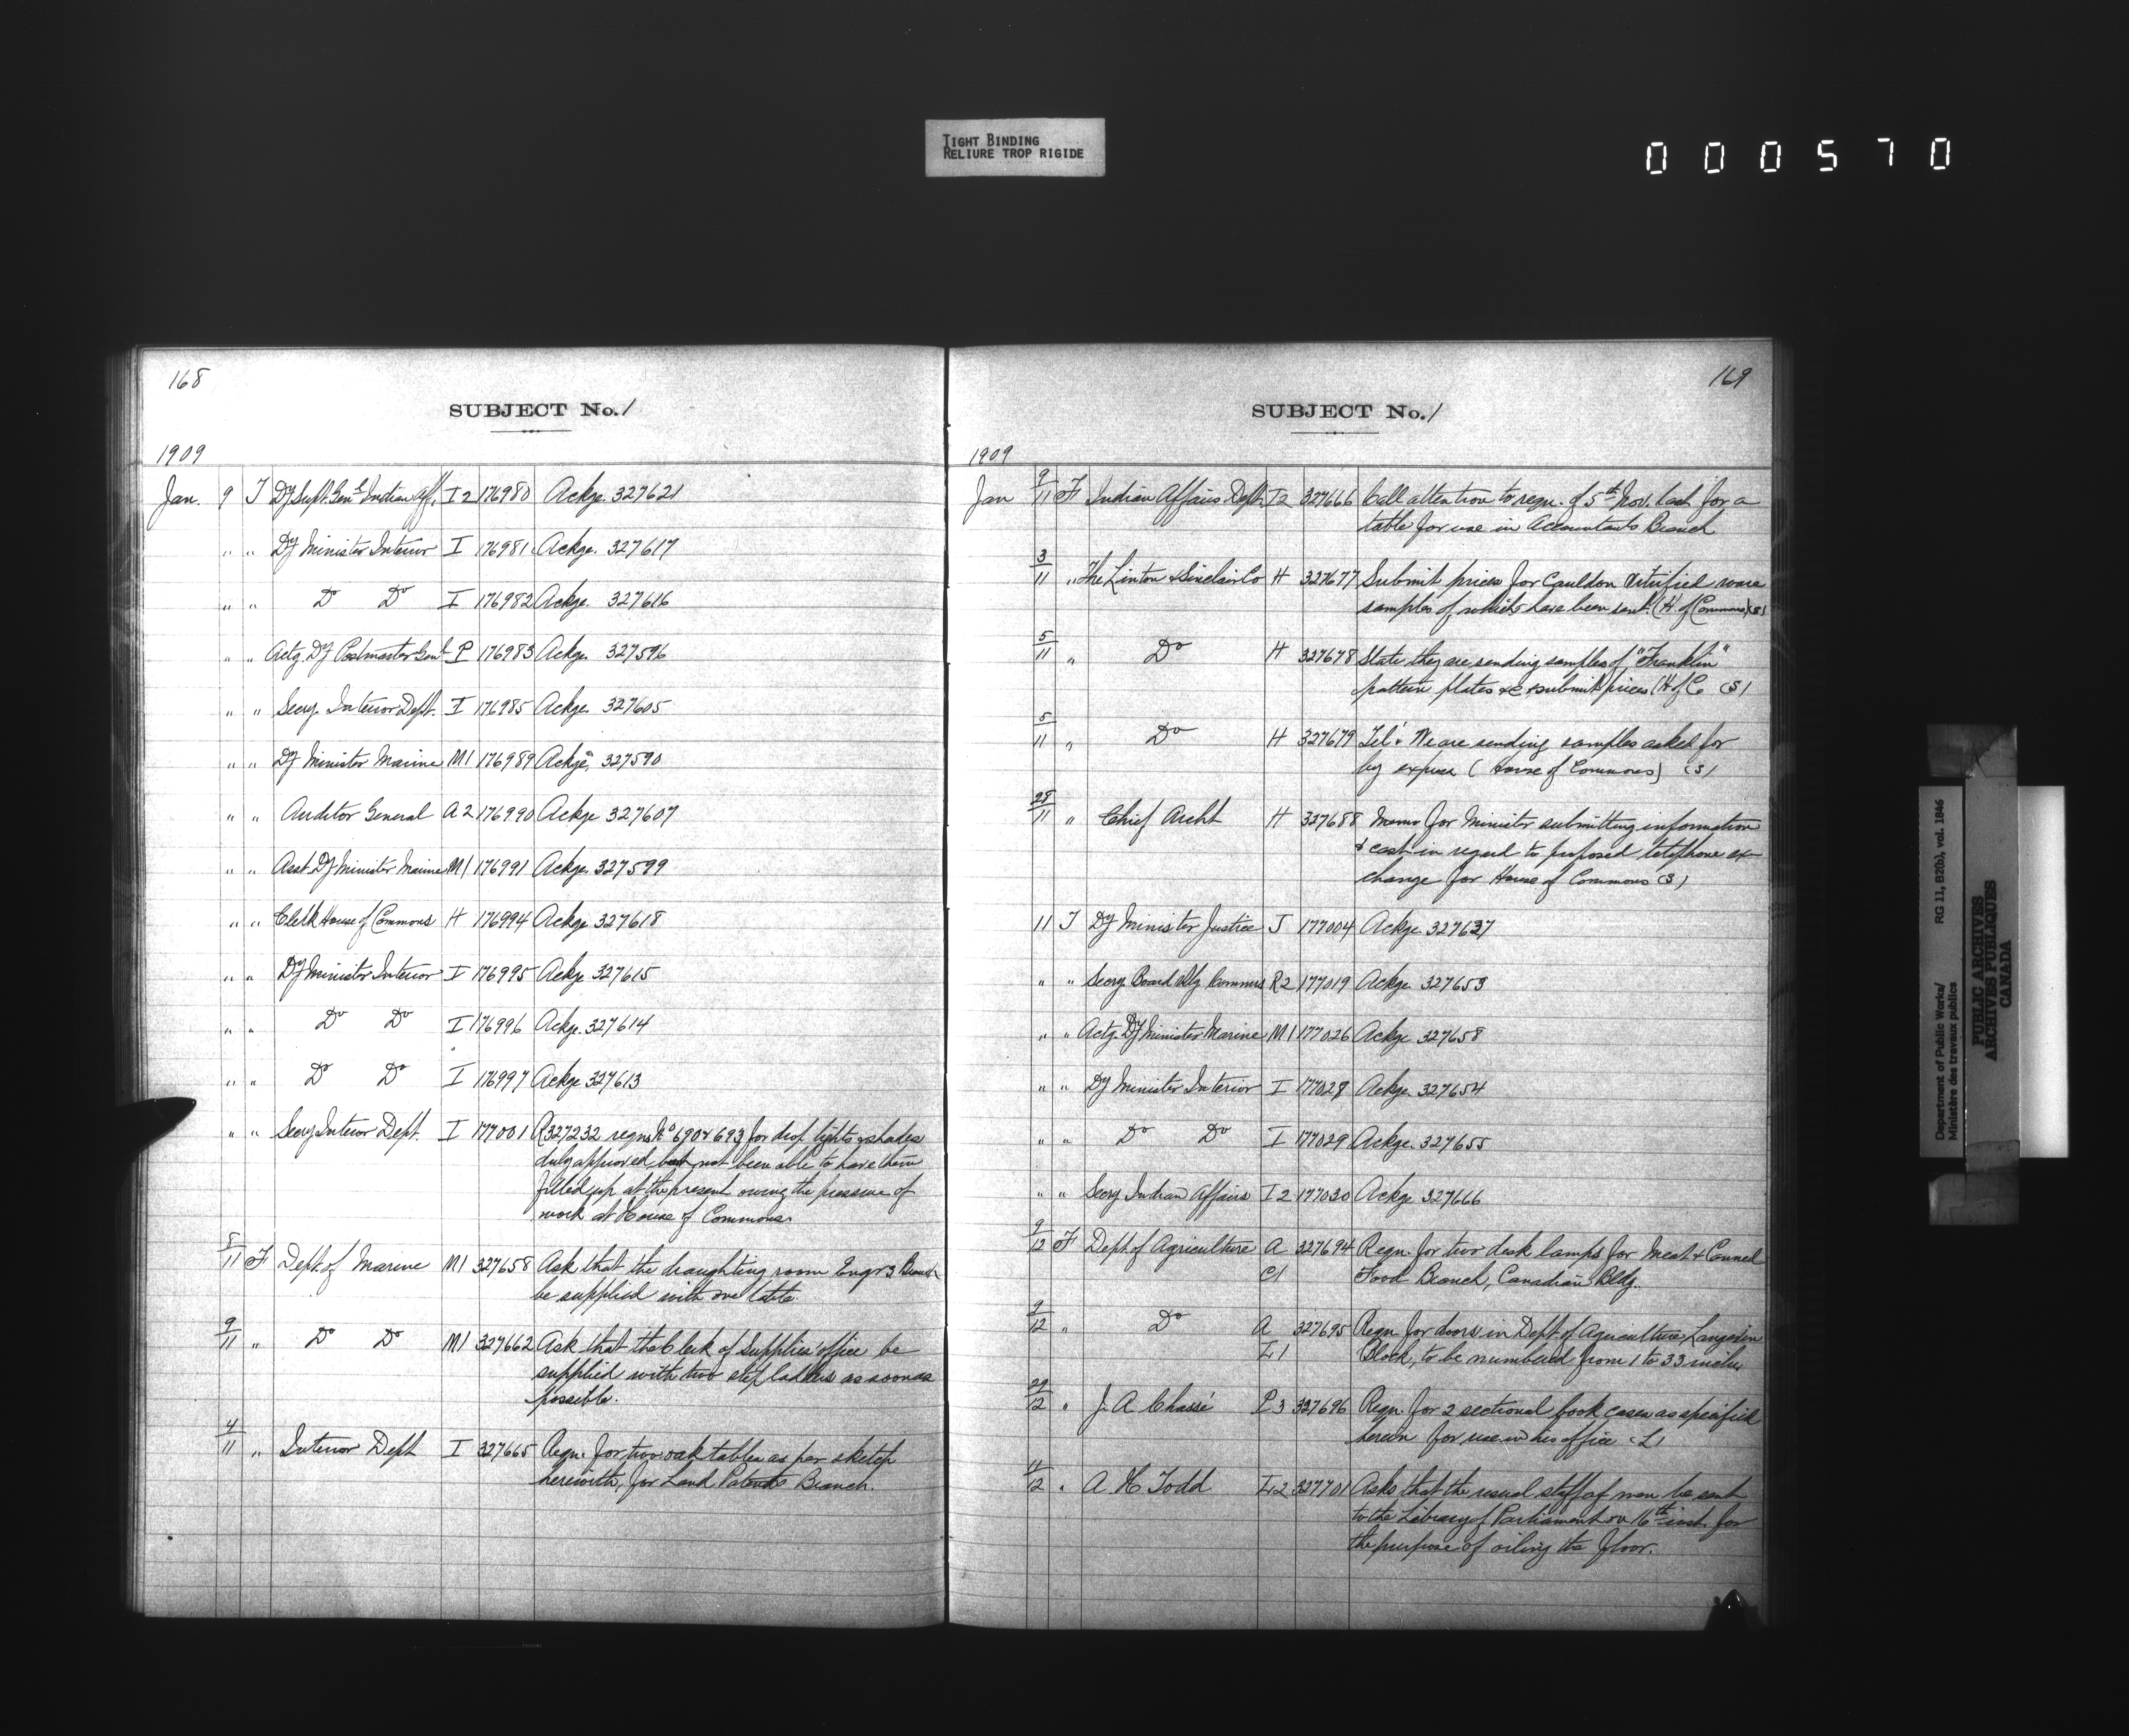 TIGHT BINDING
RELIURE TROP RIGIDE
000570
168
SUBJECT No. 1
1909
Jan. 9 T Dy Supt. Genl Indian Aff. I 2 176980 Ackge. 327621
" " Dy Minister Interior I 176981 Ackge. 327617
" " Do Do I 176982 Ackge. 327616
" " Actg. Dy Postmaster Genl P 176983 Ackge. 327596
" " Secy. Interior Dept. I 176985 Ackge. 327605
" " Dy Minister Marine M1 176989 Ackge. 327590
" " Auditor General A 2 176990 Ackge 327607
" " Asst. Dy Minister Marine M1 176991 Ackge. 327599
" " Clerk House of Commons H 176994 Ackge 327618
" " Dy Minister Interior I 176995 Ackge 327615
" " Do Do I 176996 Ackge. 327614
" " Do Do I 176997 Ackge 327613
" " Secy Interior Dept. I 177001 R327232 regns No 690 & 693 for drop lights & shades
duly approved but not been able to have them
filled up at the present owing the pressure of
work at House of Commons.
8/11 F Dept. of Marine M1 327658 Ask that the draughting room Engrs Branch
be supplied with one table.
9/11 " Do Do M1 327662 Ask that the Clerk of Supplies' office be
supplied with two step ladders as soon as
possible.
4/11 " Interior Dept I 327665 Reqn. for two oak tables as per sketch
herewith, for Land Patents Branch.
169
SUBJECT No. 1
1909
Jan 9/11 F Indian Affairs Dept. I 2 327666 Call attention to reqn. of 5th Nov. last for a
table for use in Accountants Branch
3/11 " The Linton & Sinclair Co H 327677 Submit prices for Cauldon Vitrified ware
samples of which have been sent. (H of Commons) (S)
5/11 " Do H 327678 State they are sending samples of "Franklin"
pattern plates &c & submit prices (H of C (S)
5/11 " Do H 327679 Tel: We are sending samples asked for
by express (House of Commons) (S)
28/11 " Chief Archt H 327688 Memo for Minister submitting information
& cost in regard to proposed telephone ex-
change for House of Commons (S)
11 T Dy Minister Justice J 177004 Ackge. 327637
" " Secy Board Rly Commrs R2 177019 Ackge. 327653
" " Actg. Dy Minister Marine M1 177026 Ackge. 327658
" " Dy Minister Interior I 177028 Ackge. 327654
" " Do Do I 177029 Ackge. 327655
" " Secy Indian Affairs I 2 177030 Ackge 327666
9/12 F Dept. of Agriculture A 327694 Reqn. for two desk lamps for Meat & Canned
C1 Food Branch, Canadian Bldg.
9/12 " Do A 327695 Reqn for doors in Dept. of Agriculture Langevin
L1 Block, to be numbered from 1 to 33 inclus
29/12 " J. A Chassé P 3 327696 Reqn. for 2 sectional book cases as specified
herein for use in his office (L)
11/12 " A. H. Todd L2 327701 Asks that the usual staff of men be sent
to the Library of Parliament on 16th inst. for
the purpose of oiling the floor.
Department of Public Works/ RG 11, B2(b), vol. 1846
Ministère des travaux publics
PUBLIC ARCHIVES
ARCHIVES PUBLIQUES
CANADA